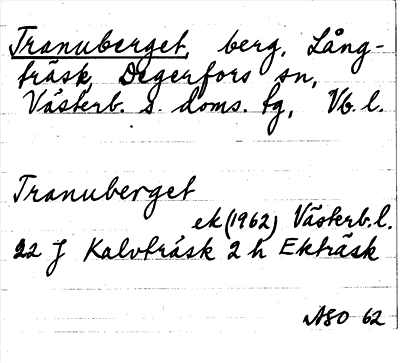 Tranuberget, berg, Lång-
träsk, Degerfors sn,
Västerb. s. doms. tg, Vb. l.
Tranuberget
ek (1962) Västerb. l.
22 J Kalvträsk 2 h Ekträsk
ASO 62